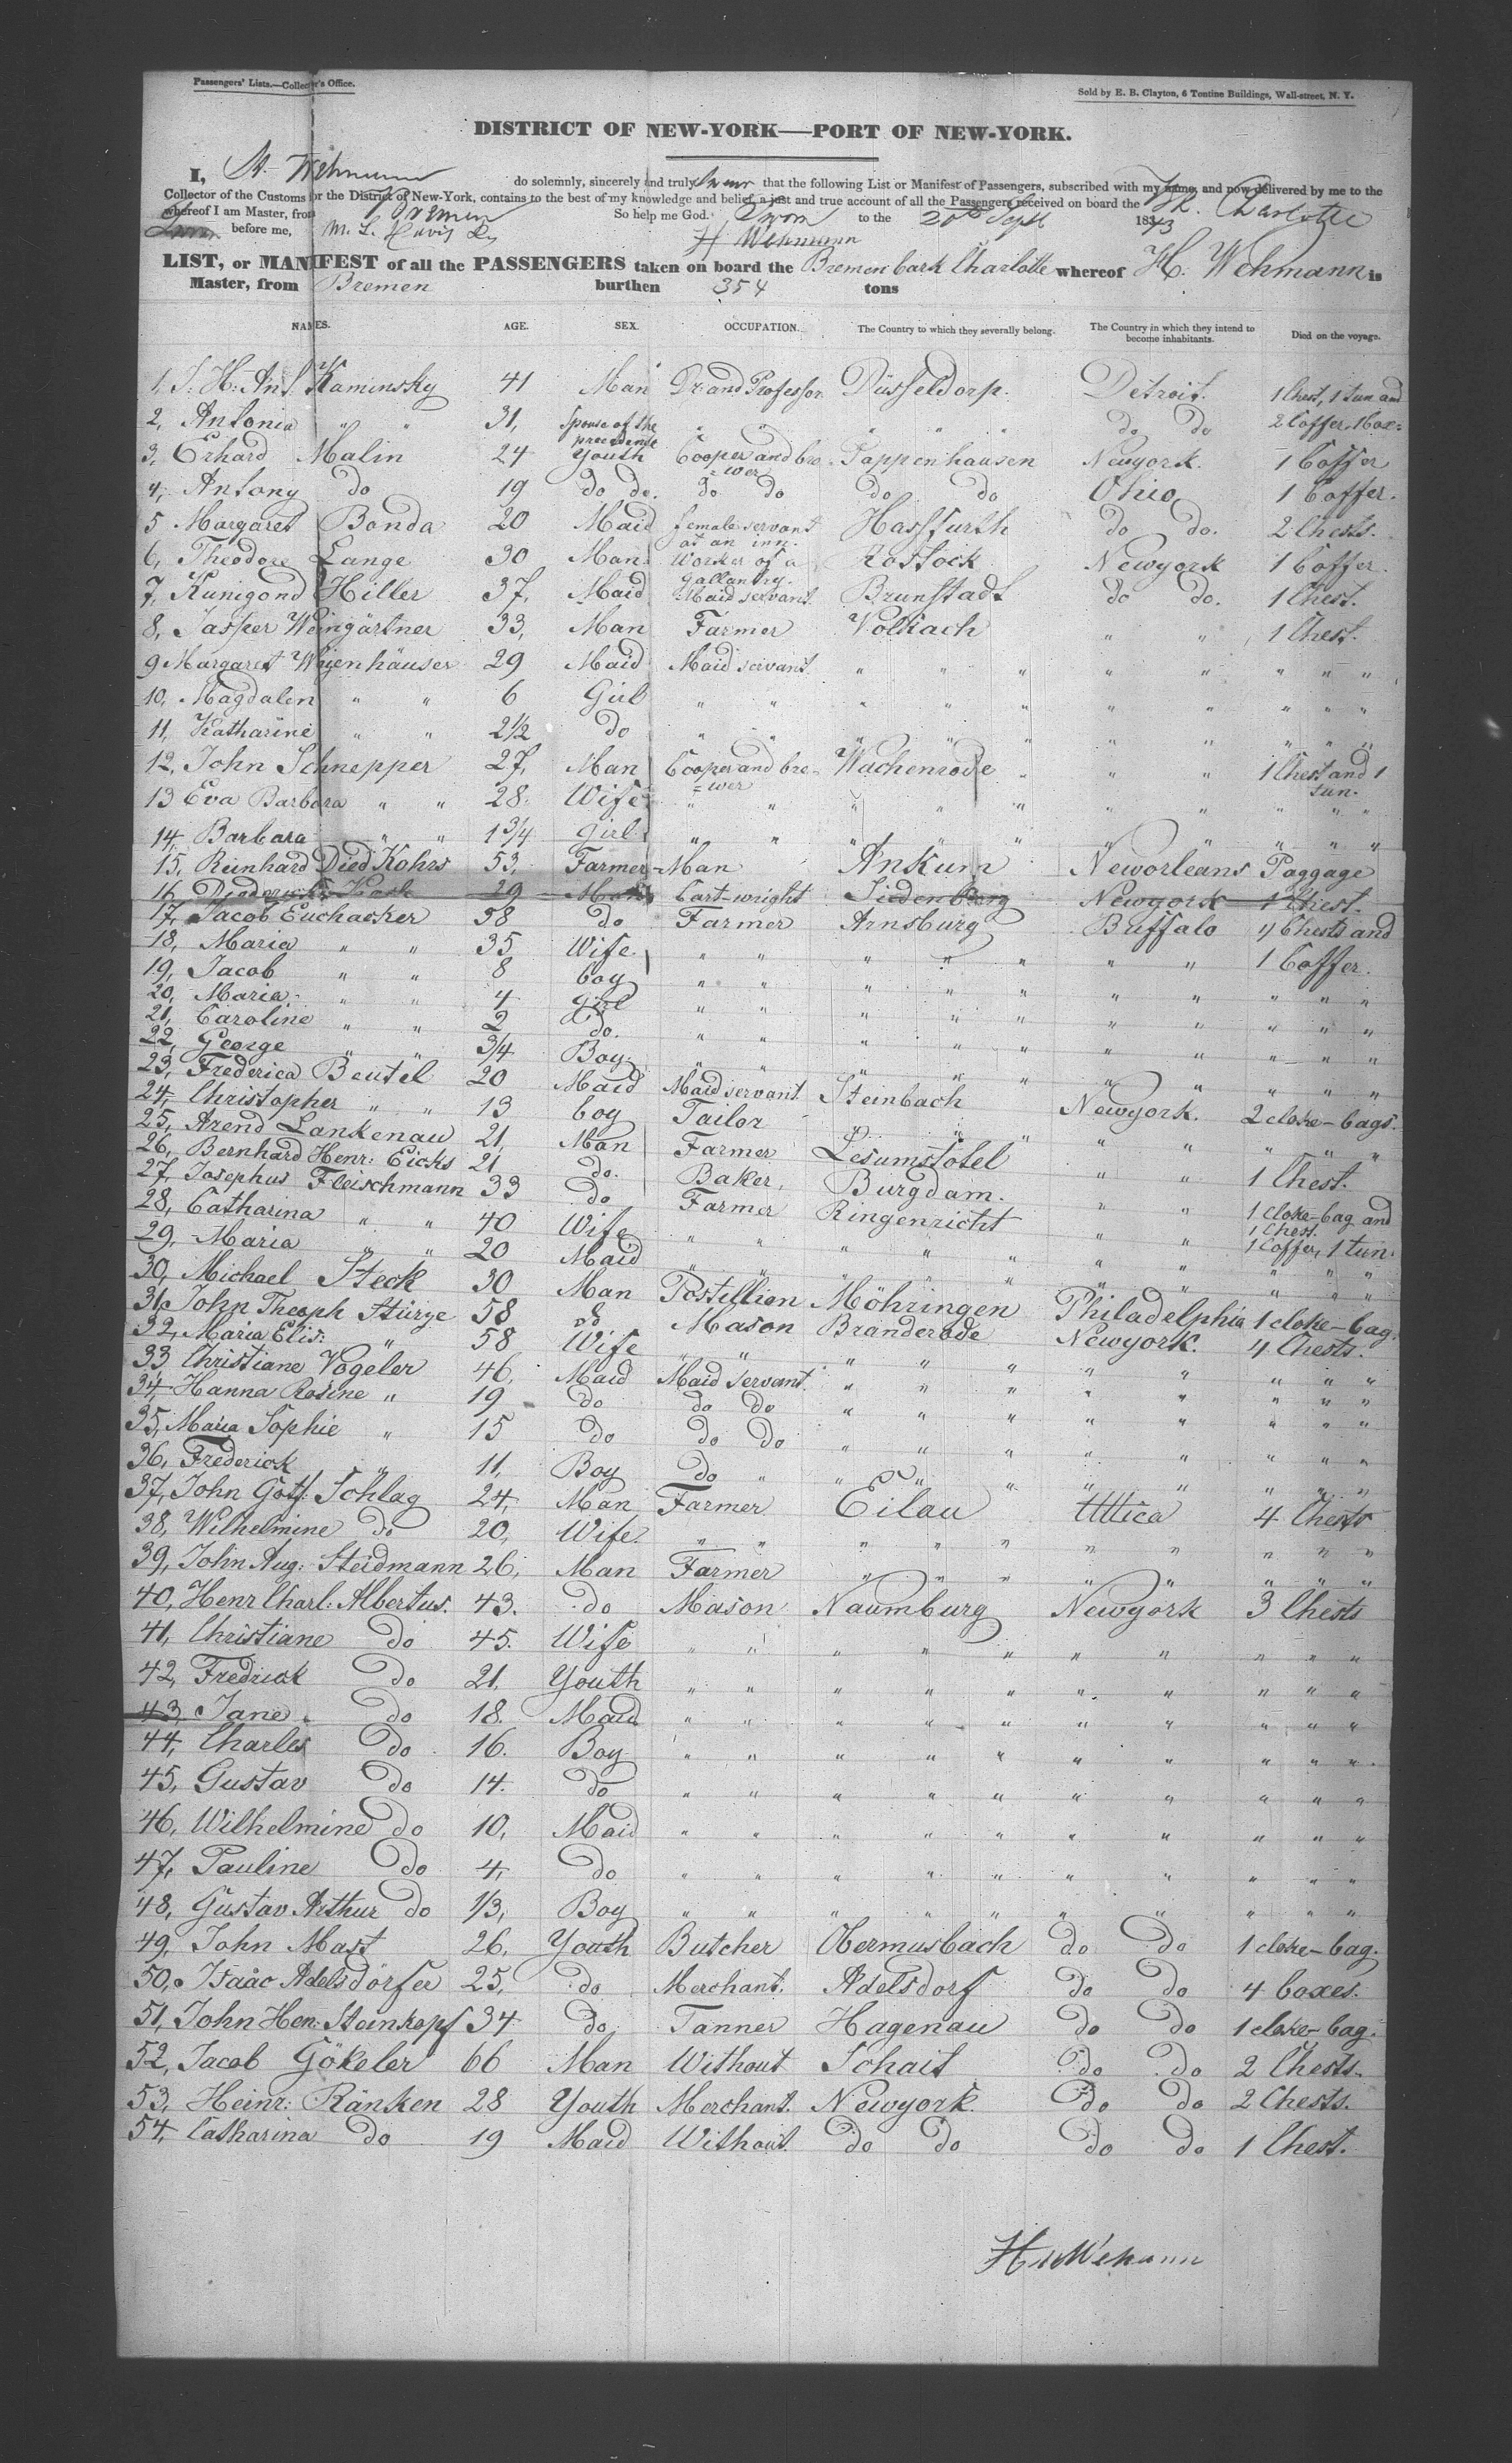 Passengers' Lists.—Collector's Office.
Sold by E. B. Clayton, 6 Tontine Buildings, Wall-street, N. Y.
DISTRICT OF NEW-YORK—PORT OF NEW-YORK.
I, H. Wehmann do solemnly, sincerely and truly swear that the following List or Manifest of Passengers, subscribed with my name, and now delivered by me to the
Collector of the Customs for the District of New-York, contains to the best of my knowledge and belief, a just and true account of all the Passengers received on board the Bk. Charlotte
whereof I am Master, from Bremen So help me God. Sworn to the 20th Sept 1843
before me, M. L. Davis H Wehmann
LIST, or MANIFEST of all the PASSENGERS taken on board the Bremen bark Charlotte whereof H. Wehmann is
Master, from Bremen burthen 354 tons
NAMES. AGE. SEX. OCCUPATION. The Country to which they severally belong. The Country in which they intend to become inhabitants. Died on the voyage.
1, J. H. Ant. Kaminsky 41 Man Dr. and Professor Düsseldorp. Detroit. 1 Chest, 1 tun and
2, Antonia " " 31, Spouse of the precedente " " " " " do do 2 Coffer, 1 Box.
3, Erhard Malin 24 Youth Cooper and bre=wer Pappenhausen Newyork. 1 Coffer
4, Antony do 19 do do. do do do do Ohio 1 Coffer.
5 Margaret Bonda 20 Maid female servant at an inn. Hassfurth do do. 2 Chests.
6, Theodore Lange 30 Man Worker of a gallantry. Rostock Newyork 1 Coffer.
7, Kunigond Hiller 37, Maid Maid servant Brunstadt do do. 1 Chest.
8, Jasper Weingärtner 33, Man Farmer Volkach " " 1 Chest.
9 Margaret Weyenhäuser 29 Maid Maid servant " " " " " " " "
10, Magdalen " " 6 Girl " " " " " " " " " "
11, Katharine " " 2½ do " " " " " " " " " "
12, John Schnepper 27, Man Cooper and bre=wer Wachenrode " " " 1 Chest and 1 tun.
13 Eva Barbara " " 28. Wife " " " " " " " " "
14, Barbara " " 1¾ girl " " " " " " " " "
15, Reinhard Died Kohrs 53, Farmer-Man Ankum Neworleans Paggage
16, 29 Man Cart-wright Siedenberg Newyork 1 Chest.
17, Jacob Euchacker 58 do Farmer Arnsburg Buffalo 4 Chests and
18, Maria " " 35 Wife " " " " " " " 1 Coffer.
19, Jacob " " 8 boy " " " " " " " " " "
20, Maria " " 4 girl " " " " " " " " " "
21, Caroline " " 2 do. " " " " " " " " " "
22, George " " ¾ Boy " " " " " " " " " "
23, Frederica Beutel 20 Maid Maid servant Steinbach Newyork. 2 cloke-bags.
24, Christopher " " 13 boy Tailor " " " " " " " "
25, Arend Lankenau 21, Man Farmer Lesumstotel " " 1 Chest.
26, Bernhard Henr: Eicks 21 do. Baker, Burgdam. " " 1 cloke-bag and 1 Chest.
27, Josephus Fleischmann 33 do Farmer Ringenricht " " 1 Coffer, 1 tun.
28, Catharina " " 40 Wife " " " " " " " " " "
29, Maria " " 20 Maid " " " " " " " " " "
30, Michael Steck 30 Man Postillion Möhringen Philadelphia 1 cloke-bag.
31, John Theoph Stürze 58 do Mason Branderode Newyork. 4 Chests.
32, Maria Elis: " 58 Wife " " " " " " " " " "
33 Christiane Vogeler 46, Maid Maid servant " " " " " " " "
34 Hanna Rosine " 19 do do do " " " " " " " "
35, Maria Sophie " 15 do do do " " " " " " " "
36, Frederick " 11, Boy do " " " " " " " " "
37, John Gotf: Schlag 24, Man Farmer Eilau Uttica 4 Chests
38, Wilhelmine do 20, Wife. " " " " " " " " " "
39, John Aug: Steidmann 26, Man Farmer " " " " " " " "
40, Henr Charl: Albertus. 43. do Mason Naumburg Newyork 3 Chests
41, Christiane do 45. Wife " " " " " " " " " "
42, Fredrick do 21. Youth " " " " " " " " " "
43, Jane do 18. Maid " " " " " " " " " "
44, Charles do 16. Boy " " " " " " " " " "
45, Gustav do 14. do " " " " " " " " " "
46, Wilhelmine do 10, Maid " " " " " " " " " "
47, Pauline do 4, do " " " " " " " " " "
48, Gustav Arthur do 1/3, Boy " " " " " " " " " "
49, John Mast 26, Youth Butcher Obermusbach do do 1 cloke-bag.
50, Isaac Adelsdörfer 25, do Merchant. Adelsdorf do do 4 boxes.
51, John Hen: Steinkopf 34 do Tanner Hagenau do do 1 cloke-bag.
52, Jacob Gökeler 66 Man Without Schait do do 2 Chests.
53, Heinr: Ränken 28 Youth Merchant. Newyork do do 2 Chests.
54, Catharina do 19 Maid Without do do do do 1 Chest.
H Wehmann